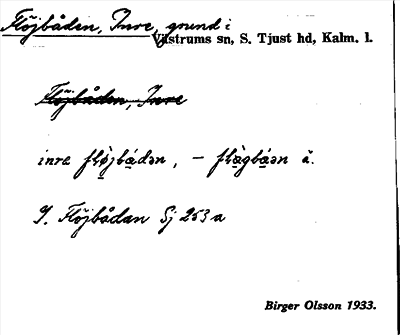 Flöjbåden, Inre, grund i
Västrums sn, S. Tjust hd, Kalm. l.
Flöjbåden, Inre
inre fløjbådən, – flägbåən ä.
I. Flöjbådan Sj 253 a
Birger Olsson 1933.